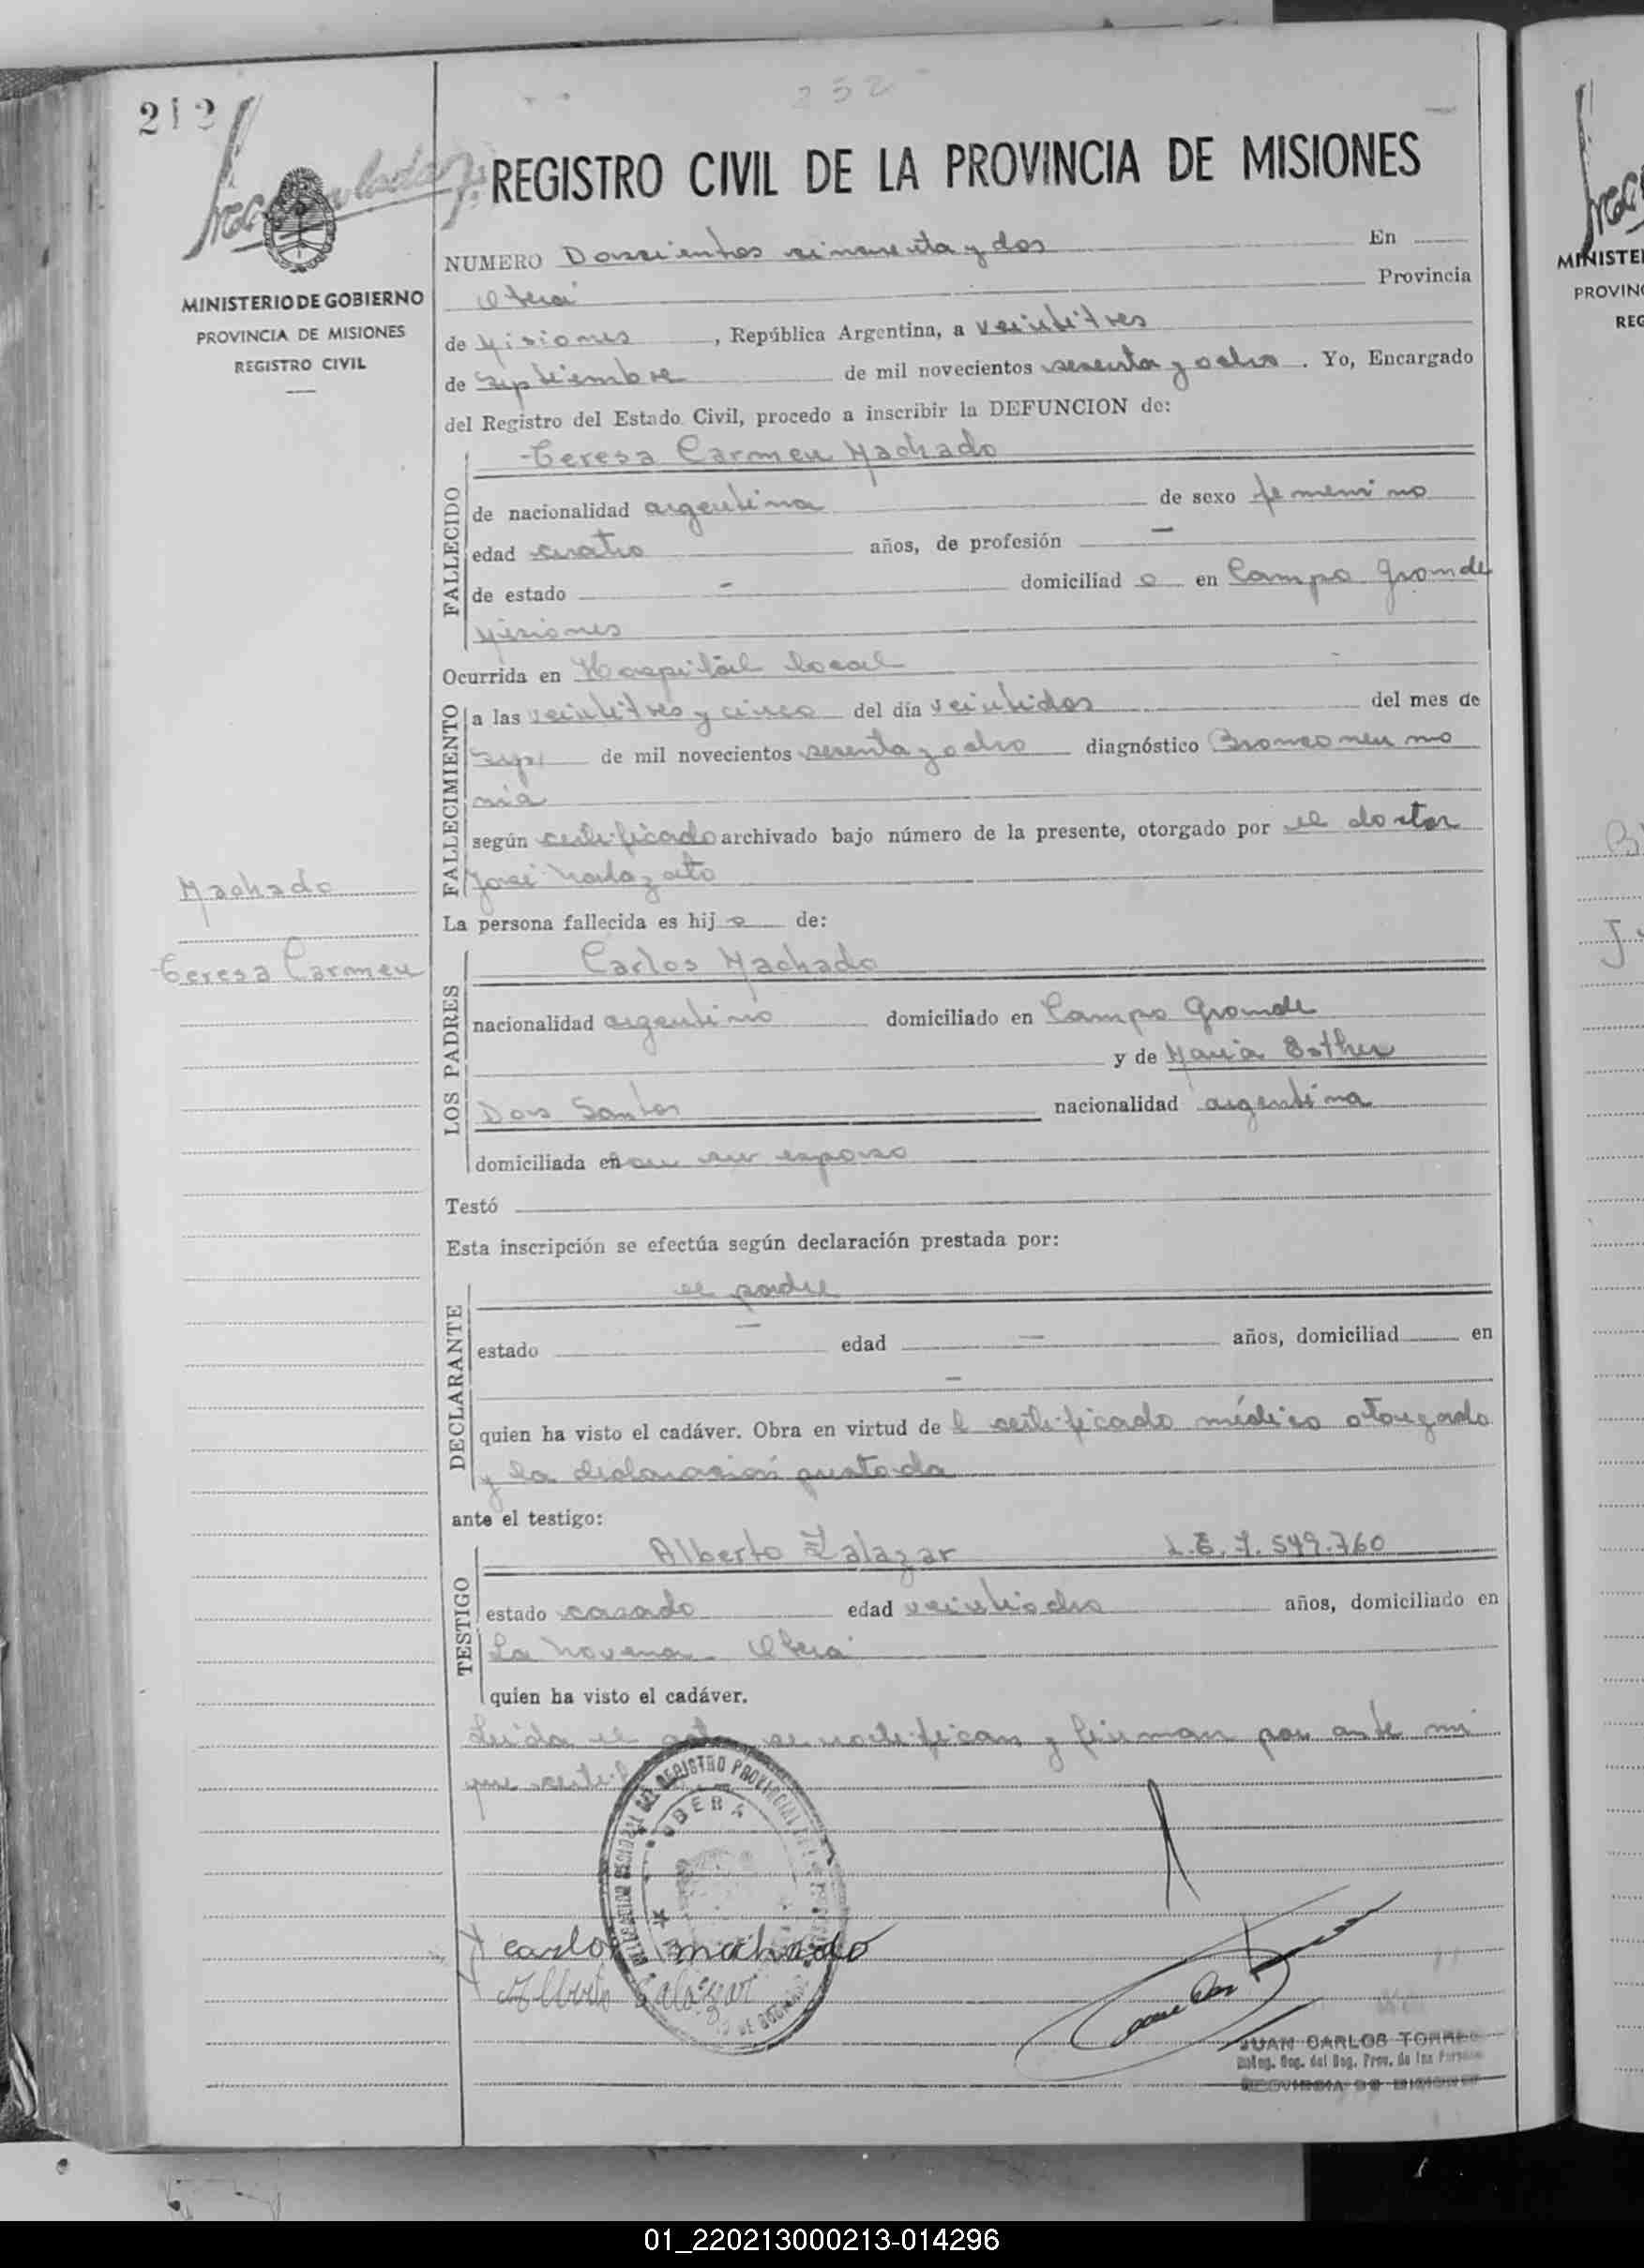 212
252
REGISTRO CIVIL DE LA PROVINCIA DE MISIONES
MINISTERIO DE GOBIERNO
PROVINCIA DE MISIONES
REGISTRO CIVIL
NUMERO Doscientos cincuenta y dos En
Oberá Provincia
de Misiones, República Argentina, a veintitres
de Septiembre de mil novecientos sesenta y ocho. Yo, Encargado
del Registro del Estado Civil, procedo a inscribir la DEFUNCION de:
FALLECIDO
Teresa Carmen Machado
de nacionalidad argentina de sexo femenino
edad cuatro años, de profesión —
de estado — domiciliad a en Campo Grande
Misiones
Ocurrida en Hospital local
FALLECIMIENTO
a las veintitres y cinco del día veintidos del mes de
Sept de mil novecientos sesenta y ocho diagnóstico Bronconeumo
nía
según certificado archivado bajo número de la presente, otorgado por el doctor
José
La persona fallecida es hij a de:
Machado
Teresa Carmen
LOS PADRES
Carlos Machado
nacionalidad argentino domiciliado en Campo Grande
y de María Esther
Dos Santos nacionalidad argentina
domiciliada en con su esposo
Testó
Esta inscripción se efectúa según declaración prestada por:
DECLARANTE
el padre
estado — edad — años, domiciliad en
—
quien ha visto el cadáver. Obra en virtud de l certificado médico otorgado
y la declaración prestada
ante el testigo:
TESTIGO
Alberto Zalazar L.E. 7.549.760
estado casado edad veintiocho años, domiciliado en
La Novena - Oberá
quien ha visto el cadáver.
Leída el acta, se ratifican y firman por ante mi
que
REGISTRO PROVINCIAL
OBERA
carlos machado
Alberto Salazar
JUAN CARLOS TORRES
Deleg. Seg. del Reg. Prov. de las Personas
PROVINCIA DE MISIONES
MINISTE
PROVIN
REG
01_220213000213-014296